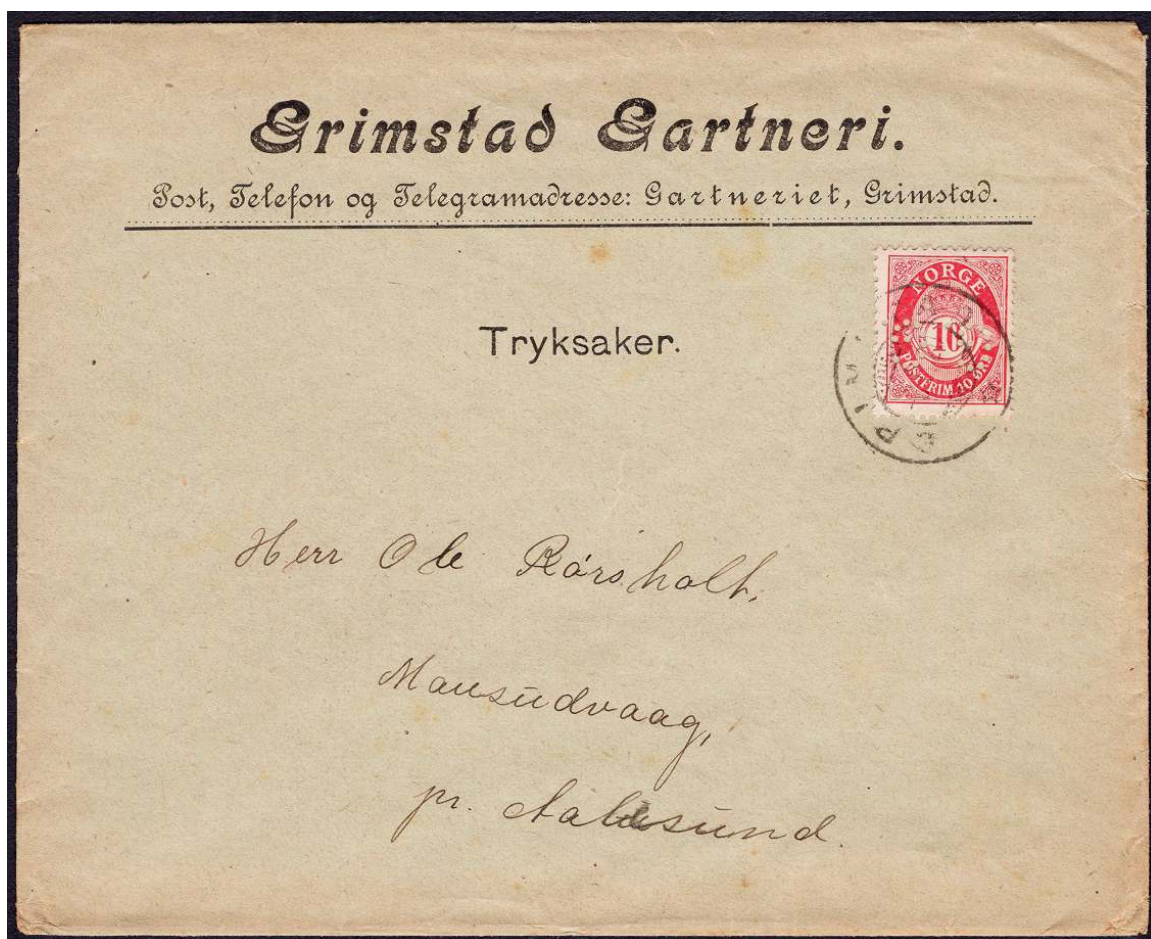 Grimstad Gartneri.
Post, Telefon og Telegramadresse: Gartneriet, Grimstad.
NORGE
10
POSTFRIM. 10 ØRE
Tryksaker.
Herr Ole Rørsholt,
Mausundvaag,
pr. Aalesund.